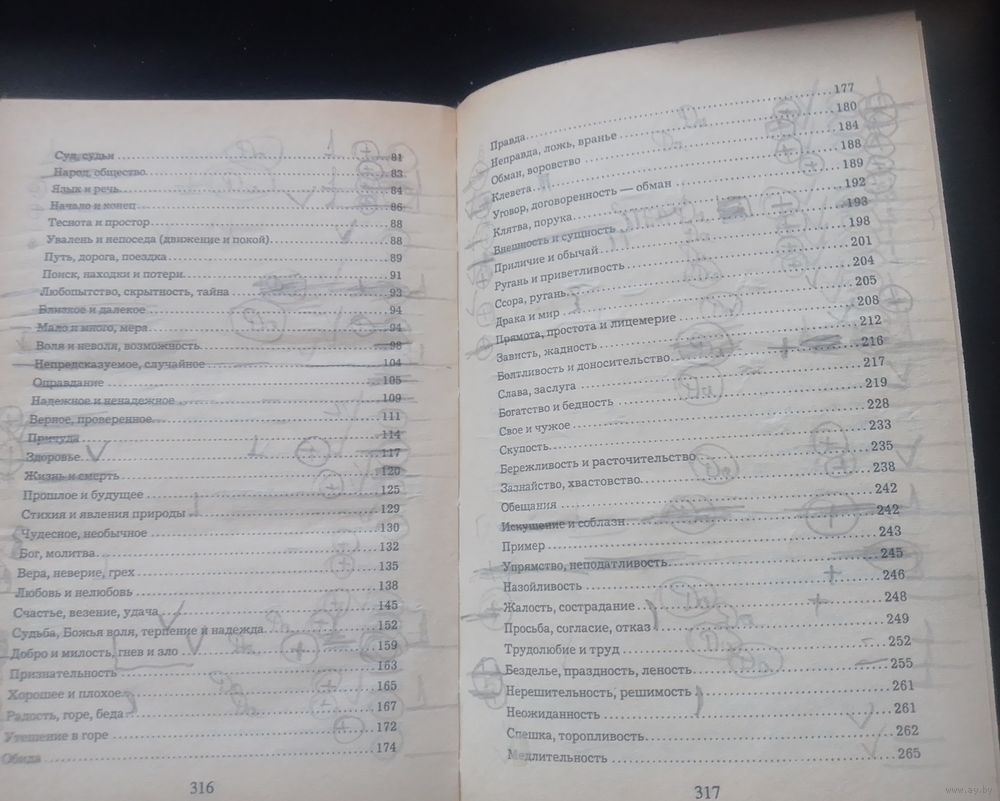 Суд, судьи ... 81
Народ, общество ... 83
Язык и речь ... 84
Начало и конец ... 86
Теснота и простор ... 88
Увалень и непоседа (движение и покой) ... 88
Путь, дорога, поездка ... 89
Поиск, находки и потери ... 91
Любопытство, скрытность, тайна ... 93
Близкое и далекое ... 94
Мало и много, мера ... 94
Воля и неволя, возможность ... 98
Непредсказуемое, случайное ... 104
Оправдание ... 105
Надежное и ненадежное ... 109
Верное, проверенное ... 111
Причуда ... 114
Здоровье ... 117
Жизнь и смерть ... 120
Прошлое и будущее ... 125
Стихия и явления природы ... 129
Чудесное, необычное ... 130
Бог, молитва ... 132
Вера, неверие, грех ... 135
Любовь и нелюбовь ... 138
Счастье, везение, удача ... 145
Судьба, Божья воля, терпение и надежда ... 152
Добро и милость, гнев и зло ... 159
Признательность ... 163
Хорошее и плохое ... 165
Радость, горе, беда ... 167
Утешение в горе ... 172
Обида ... 174
316
Правда ... 177
Неправда, ложь, вранье ... 180
Обман, воровство ... 184
Клевета ... 188
Уговор, договоренность — обман ... 189
Клятва, порука ... 192
Внешность и сущность ... 193
Приличие и обычай ... 198
Ругань и приветливость ... 201
Ссора, ругань ... 204
Драка и мир ... 205
Прямота, простота и лицемерие ... 208
Зависть, жадность ... 212
Болтливость и доносительство ... 216
Слава, заслуга ... 217
Богатство и бедность ... 219
Свое и чужое ... 228
Скупость ... 233
Бережливость и расточительство ... 235
Зазнайство, хвастовство ... 238
Обещания ... 242
Искушение и соблазн ... 242
Пример ... 243
Упрямство, неподатливость ... 245
Назойливость ... 246
Жалость, сострадание ... 248
Просьба, согласие, отказ ... 249
Трудолюбие и труд ... 252
Безделье, праздность, леность ... 255
Нерешительность, решимость ... 261
Неожиданность ... 261
Спешка, торопливость ... 262
Медлительность ... 265
317
www.ay.by